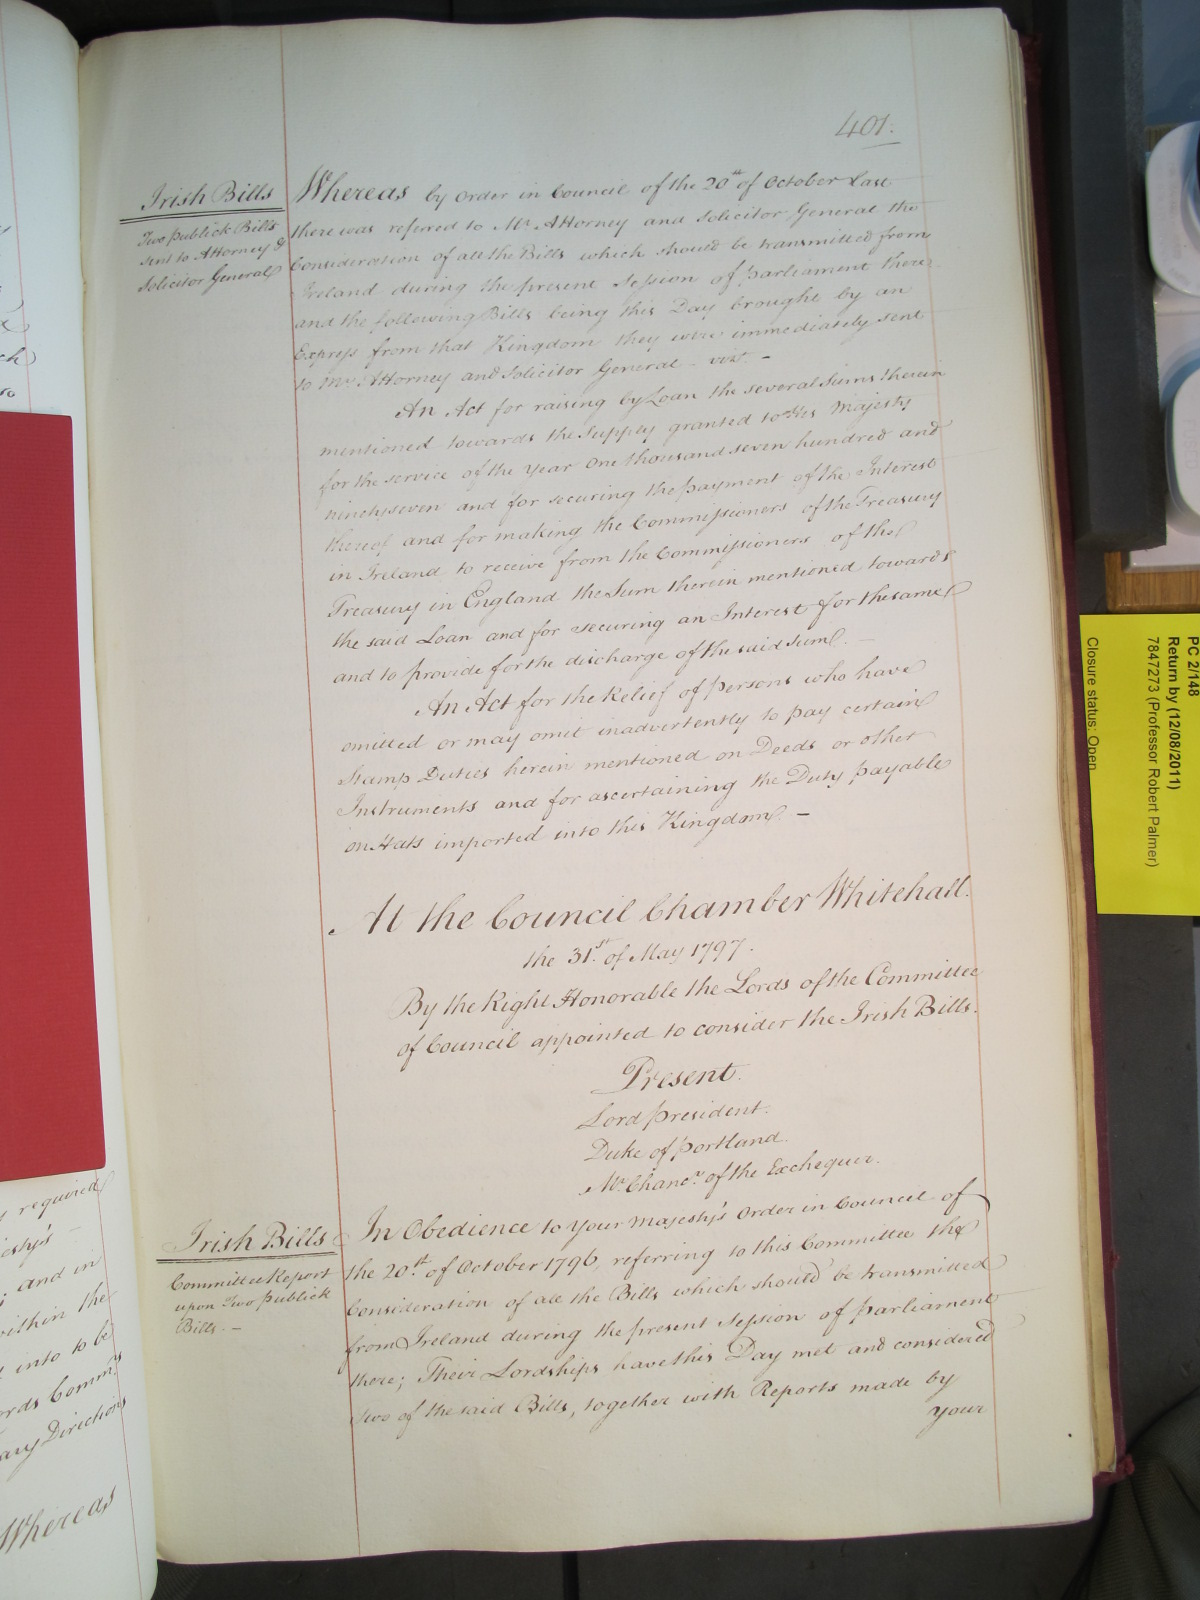 401.
Irish Bills
Two publick Bills
sent to Attorney &
Solicitor General
Whereas by Order in Council of the 20th of October Last
there was referred to Mr. Attorney and Solicitor General the
Consideration of all the Bills which should be transmitted from
Ireland during the present Session of Parliament there
and the following Bills being this Day brought by an
Express from that Kingdom they were immediately sent
to Mr. Attorney and Solicitor General - vizt. -
An Act for raising by Loan the several Sums therein
mentioned towards the Supply granted to His Majesty
for the service of the Year One thousand seven hundred and
ninety seven and for securing the payment of the Interest
thereof and for making the Commissioners of the Treasury
in Ireland to receive from the Commissioners of the
Treasury in England the Sum therein mentioned towards
the said Loan and for securing an Interest for the same
and to provide for the discharge of the said Sum. -
An Act for the Relief of Persons who have
omitted or may omit inadvertently to pay certain
Stamp Duties herein mentioned on Deeds or other
Instruments and for ascertaining the Duty payable
on Hats imported into this Kingdom. -
At the Council Chamber Whitehall.
the 31st. of May 1797.
By the Right Honorable the Lords of the Committee
of Council appointed to consider the Irish Bills.
Present.
Lord President.
Duke of Portland.
Mr. Chancr. of the Exchequer.
Irish Bills
Committee Report
upon Two Publick
Bills. -
In Obedience to Your Majesty's Order in Council of
the 20th. of October 1796, referring to this Committee the
Consideration of all the Bills which should be transmitted
from Ireland during the present Session of Parliament
there; Their Lordships have this Day met and considered
two of the said Bills, together with Reports made by
your
required
and in
within the
into to be
Lords Commrs
Directions
Whereas
PC 2/148
Return by (12/08/2011)
7847273 (Professor Robert Palmer)
Closure status: Open